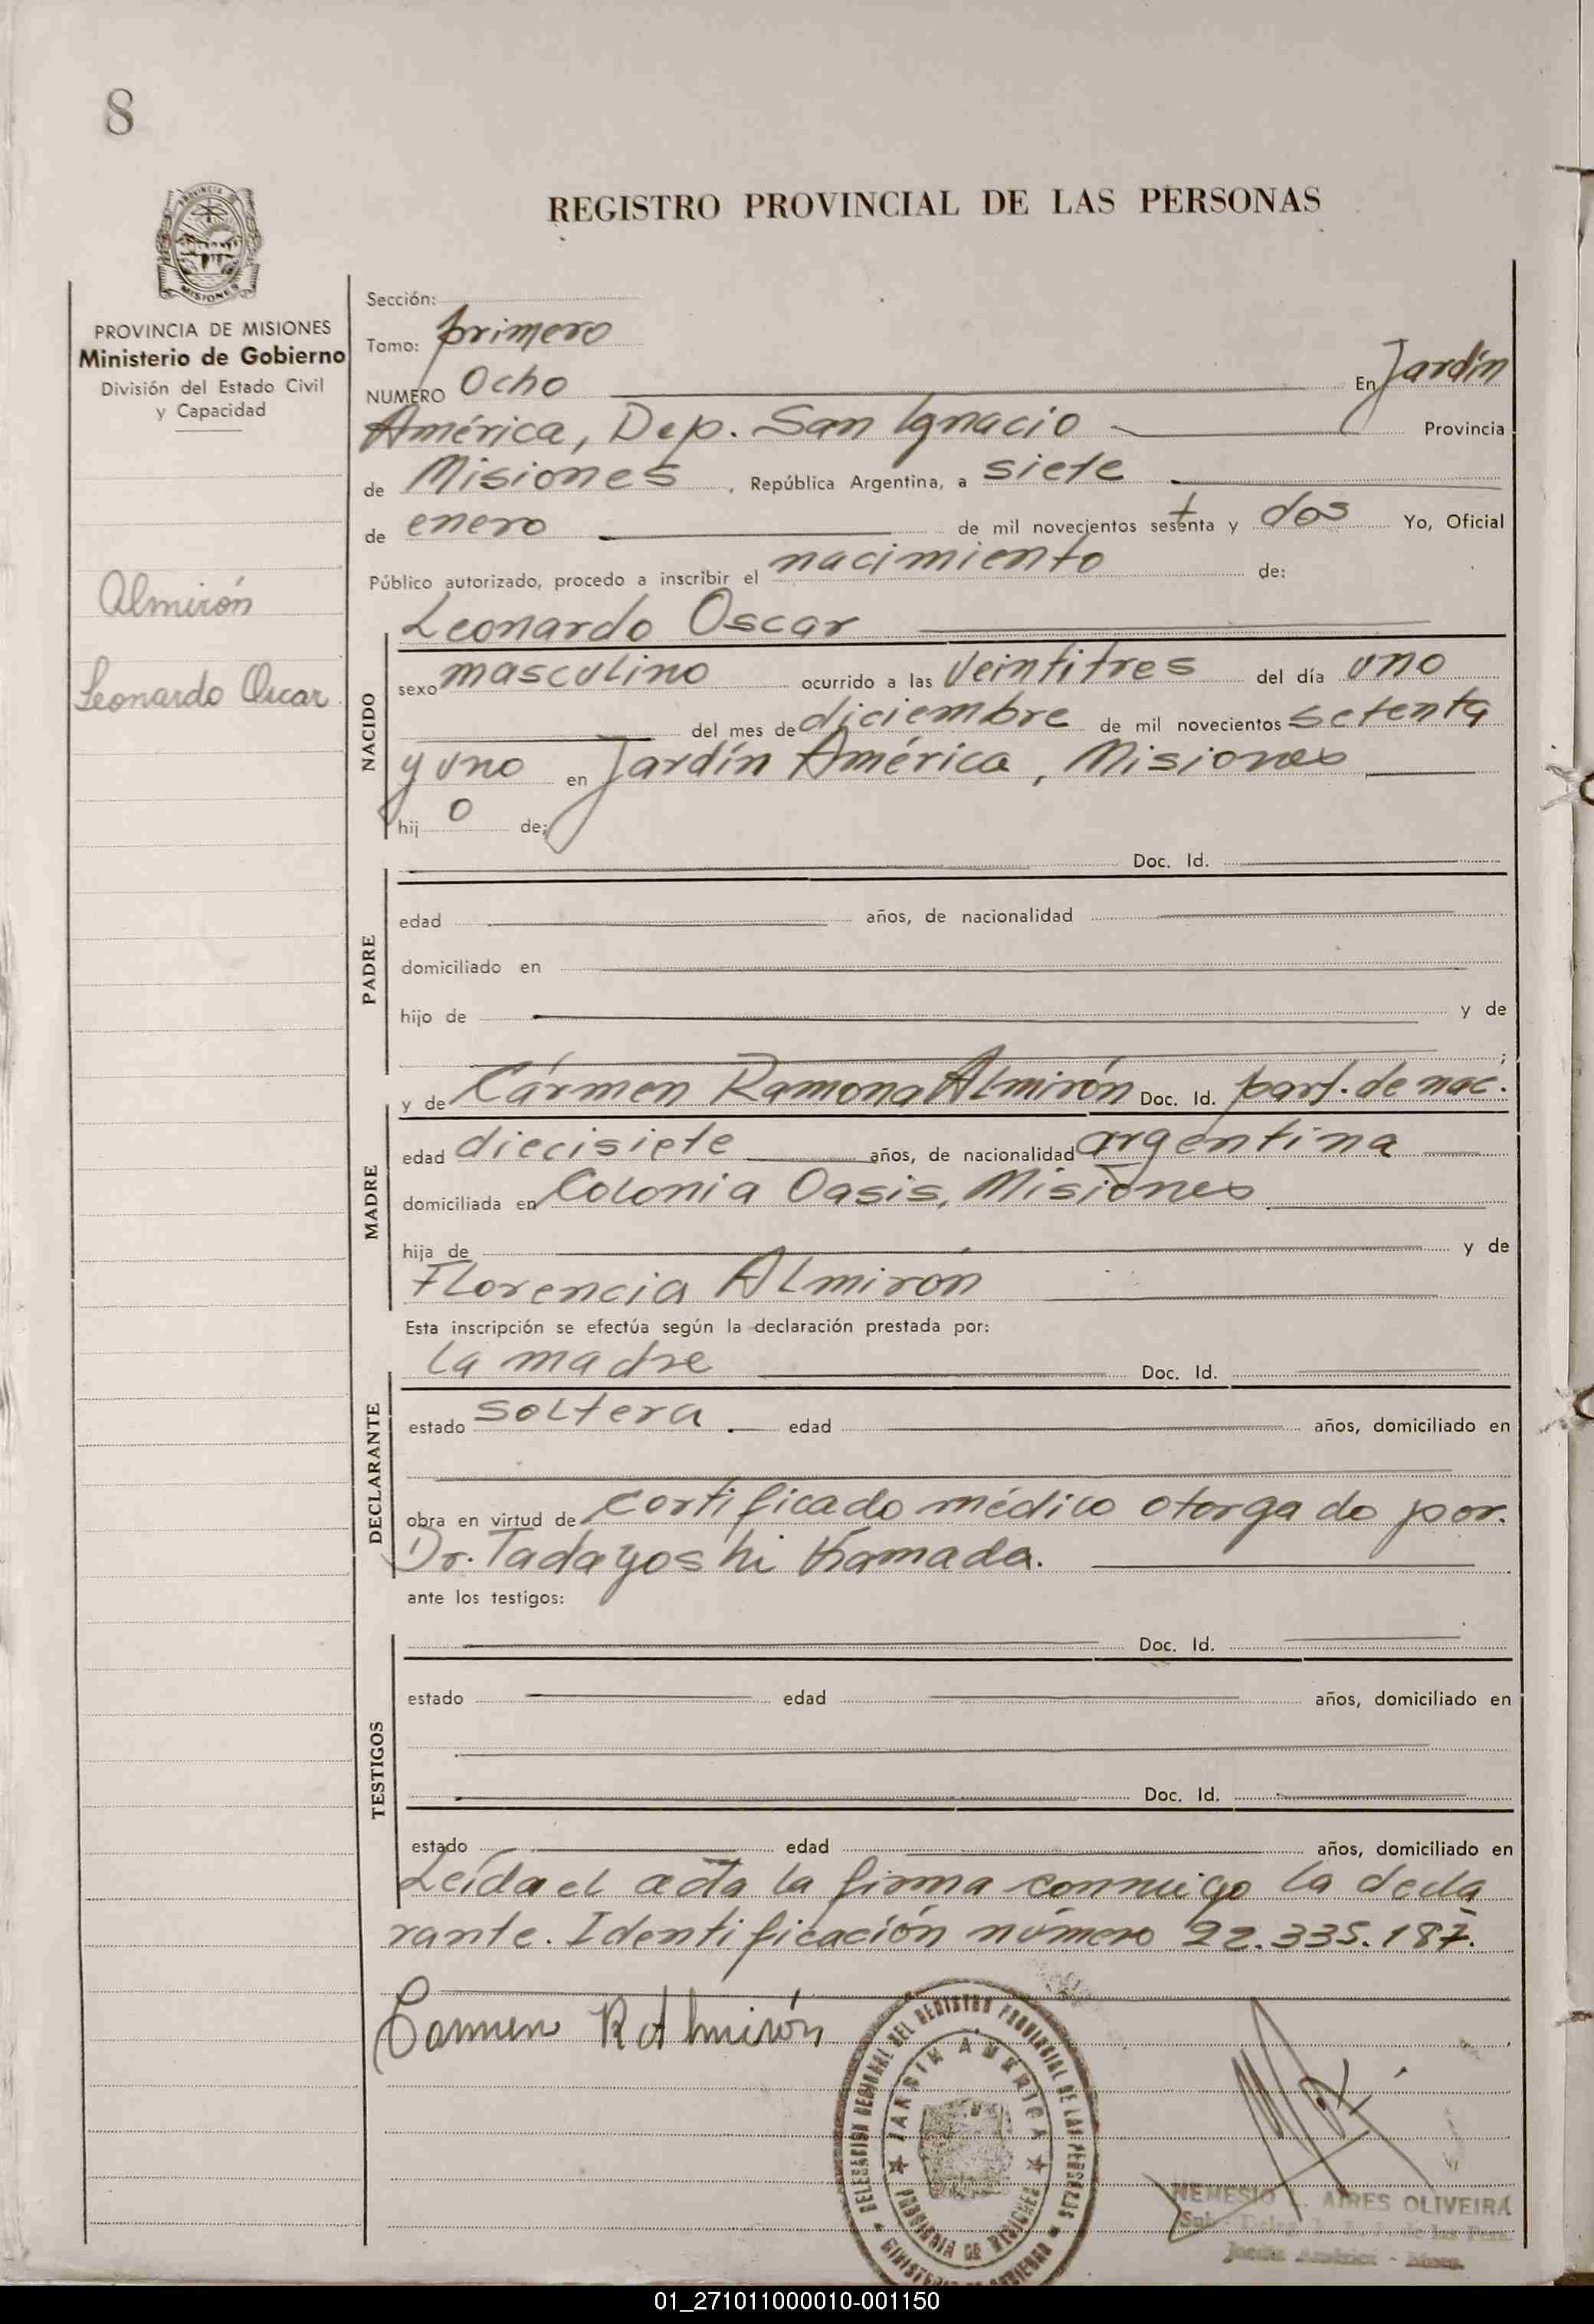 8
REGISTRO PROVINCIAL DE LAS PERSONAS
PROVINCIA
MISIONES
PROVINCIA DE MISIONES
Ministerio de Gobierno
División del Estado Civil
y Capacidad
Almirón
Leonardo Oscar
Sección:
Tomo: primero
NUMERO Ocho En Jardín
América, Dep. San Ignacio Provincia
de Misiones, República Argentina, a siete
de enero de mil novecientos setenta y dos Yo, Oficial
Público autorizado, procedo a inscribir el nacimiento de:
Leonardo Oscar
NACIDO
sexo masculino ocurrido a las veintitres del día uno
del mes de diciembre de mil novecientos setenta
y uno en Jardín América, Misiones
hij o de;
PADRE
Doc. Id.
edad años, de nacionalidad
domiciliado en
hijo de y de
;
MADRE
y de Cármen Ramona Almirón Doc. Id. part. de nac.
edad diecisiete años, de nacionalidad argentina
domiciliada en Colonia Oasis, Misiones
hija de y de
Florencia Almirón
Esta inscripción se efectúa según la declaración prestada por:
DECLARANTE
la madre Doc. Id.
estado soltera. edad años, domiciliado en
obra en virtud de certificado médico otorgado por.
Dr. Tadayoshi Kamada.
ante los testigos:
TESTIGOS
Doc. Id.
estado edad años, domiciliado en
Doc. Id.
estado edad años, domiciliado en
Leída el acta la firma conmigo la decla
rante. Identificación número 22.335.187.
Carmen R Almirón
DELEGACION REGIONAL DEL REGISTRO PROVINCIAL DE LAS PERSONAS
JARDIN AMERICA
PROVINCIA DE MISIONES
MINISTERIO DE GOBIERNO
NEMESIO L. AIRES OLIVEIRA
de las Pers.
Jardín América - Mnes.
01_271011000010-001150